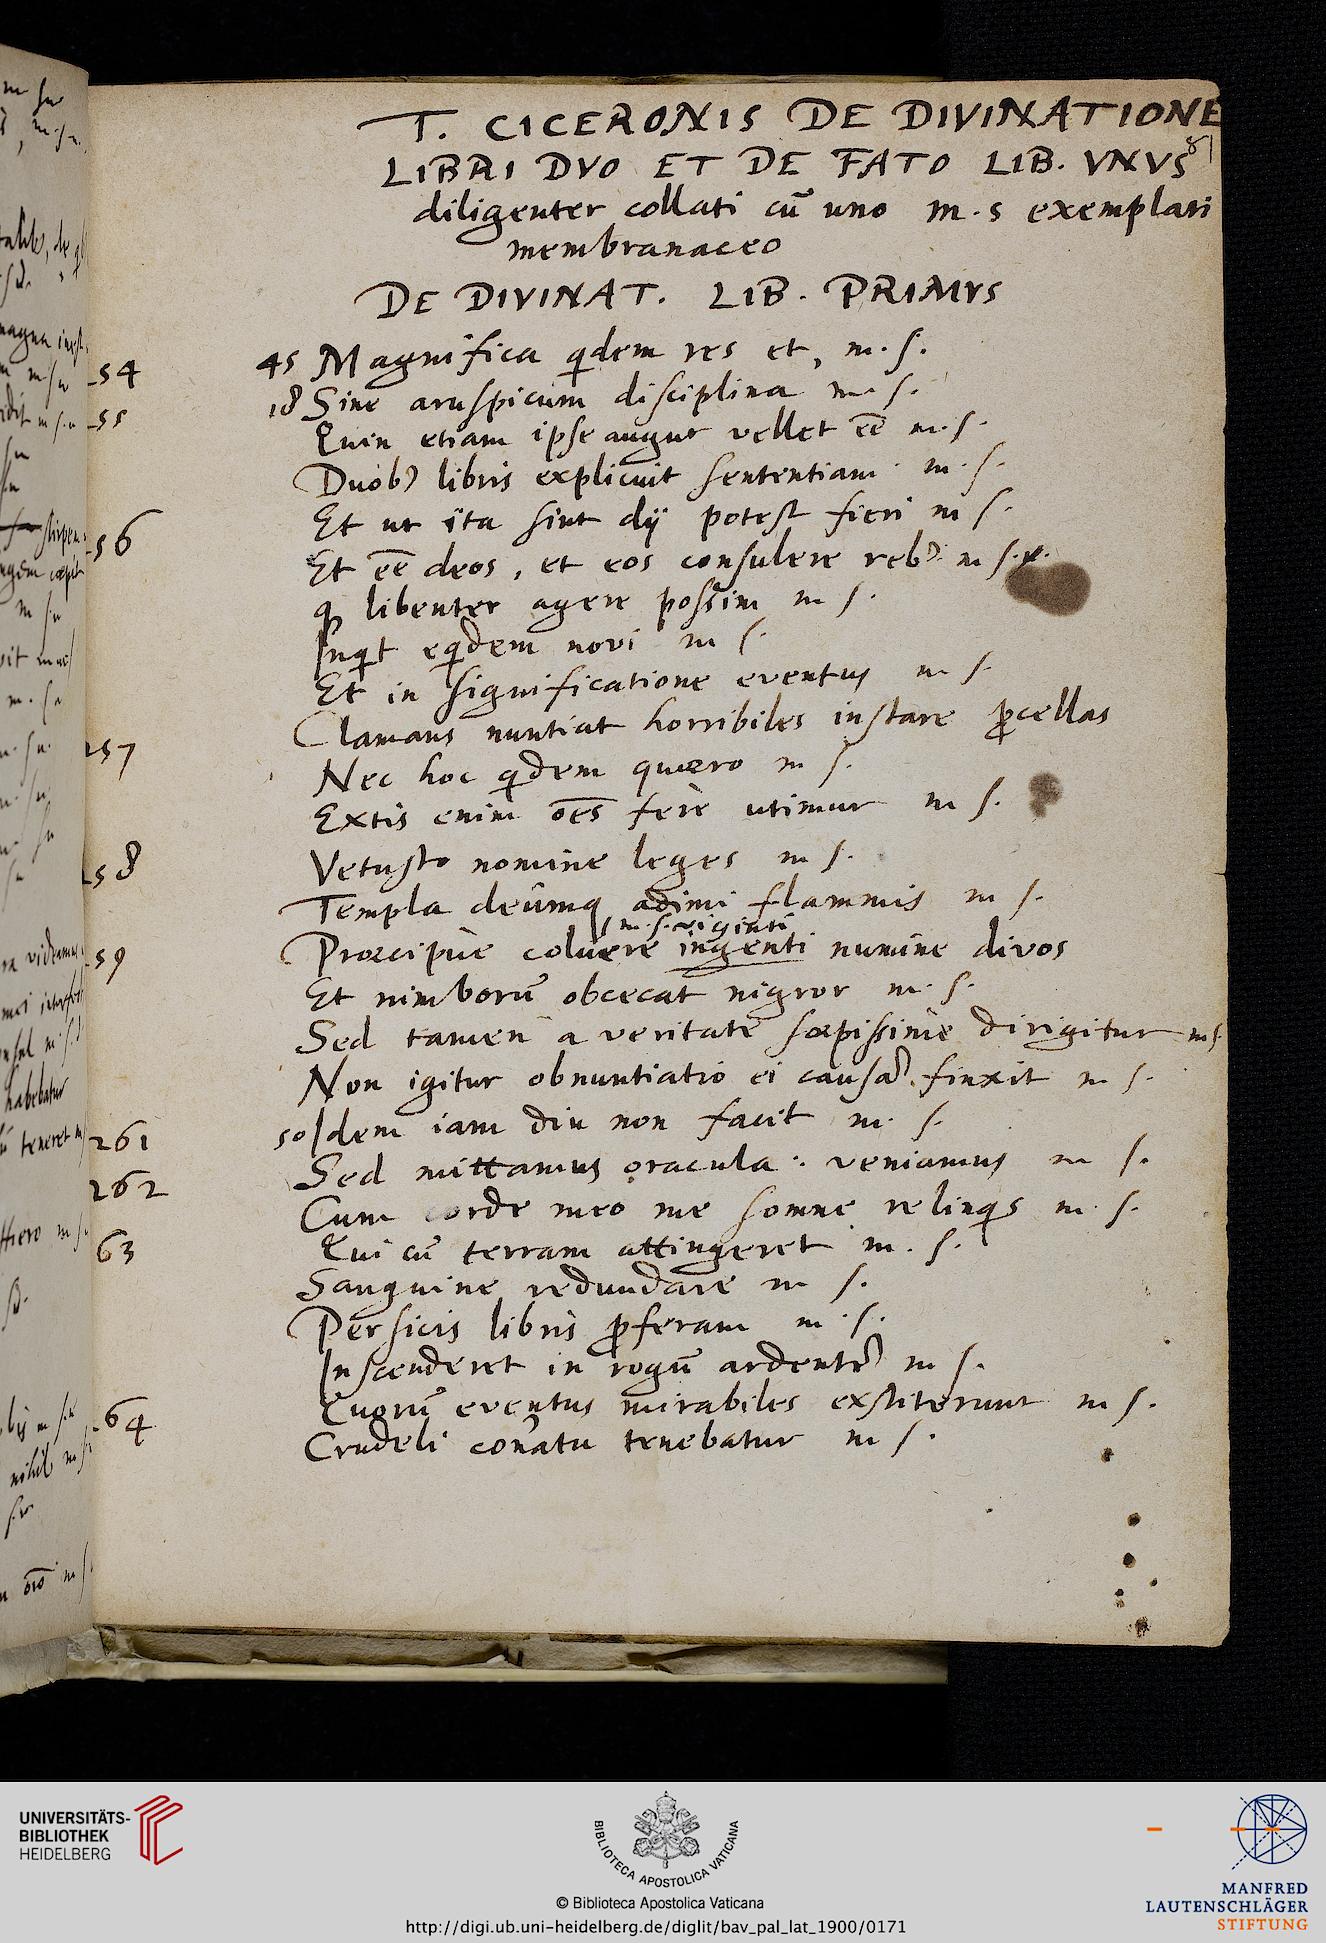 T. CICERONIS DE DIVINATIONE
LIBRI DVO ET DE FATO LIB. VNVS
diligenter collati cū uno m.s exemplari
membranaceo
DE DIVINAT. LIB. PRIMVS
254 45 Magnifica qdem res et, m. s.
255 18 Sine aruspicum disciplina m. s.
Quin etiam ipse augur vellet eē m. s.
Duob9 libris explicuit sententiam m. s.
Et ut ita sint dij potest fieri m s.
256 Et eē deos, et eos consulere reb9 m s.
q libenter agere possim m s.
Inqt eqdem novi m s.
Et in significatione eventus m s.
Clamans nuntiat horribiles instare pcellas
257 Nec hoc qdem quæro m s.
Extis enim oēs ferè utimur m s.
258 Vetusto nomine leges m s.
Templa deûmq adimi flammis m s.
m. s.
259 Præcipùe coluere ingenti numine divos
Et nimborū obcecat nigror m. s.
Sed tamen a veritate sæpissime dirigitur ms.
Non igitur obnuntiatio ei causā finxit m s.
261 50 Idem iam diu non facit m. s.
262 Sed mittamus oracula: veniamus m s.
Cum corde meo me somne relinqs m. s.
63 Qui cū terram attingeret m. s.
Sanguine redundare m s.
Persicis libris pferam m. s.
Inscenderet in rogū ardentē m s.
64 Quorū eventus mirabiles exstiterunt m s.
Crudeli conatu tenebatur m s.
UNIVERSITÄTS-
BIBLIOTHEK
HEIDELBERG
BIBLIOTECA APOSTOLICA VATICANA
© Biblioteca Apostolica Vaticana
http://digi.ub.uni-heidelberg.de/diglit/bav_pal_lat_1900/0171
MANFRED
LAUTENSCHLÄGER
STIFTUNG